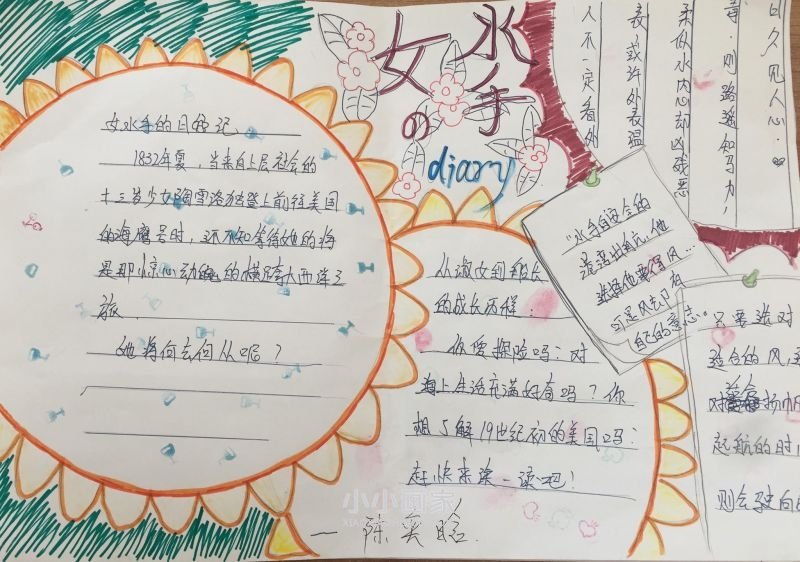 女水手の
diary
女水手的日记
1832年夏，当来自上层社会的
十三岁少女雪洛狄登上前往美国
的海鹰号时，还不知等待她的将
是那惊心动魄的横跨大西洋之
旅。
她将何去何从呢？
从淑女到船长
的成长历程：
你爱探险吗？对
海上生活充满好奇吗？你
想了解19世纪初的美国吗？
赶快来读一读吧！
"水手自安全的
港湾出航，他
选择他要得风…
可是风也乃有
自己的意志"
只要选对
适合的风，
对 扬帆
起航的时
则会驶向
人不一定看外
表，或许外表温
柔似水内心却凶残恶
毒，则路遥知马力，
日久见人心。
小小画家